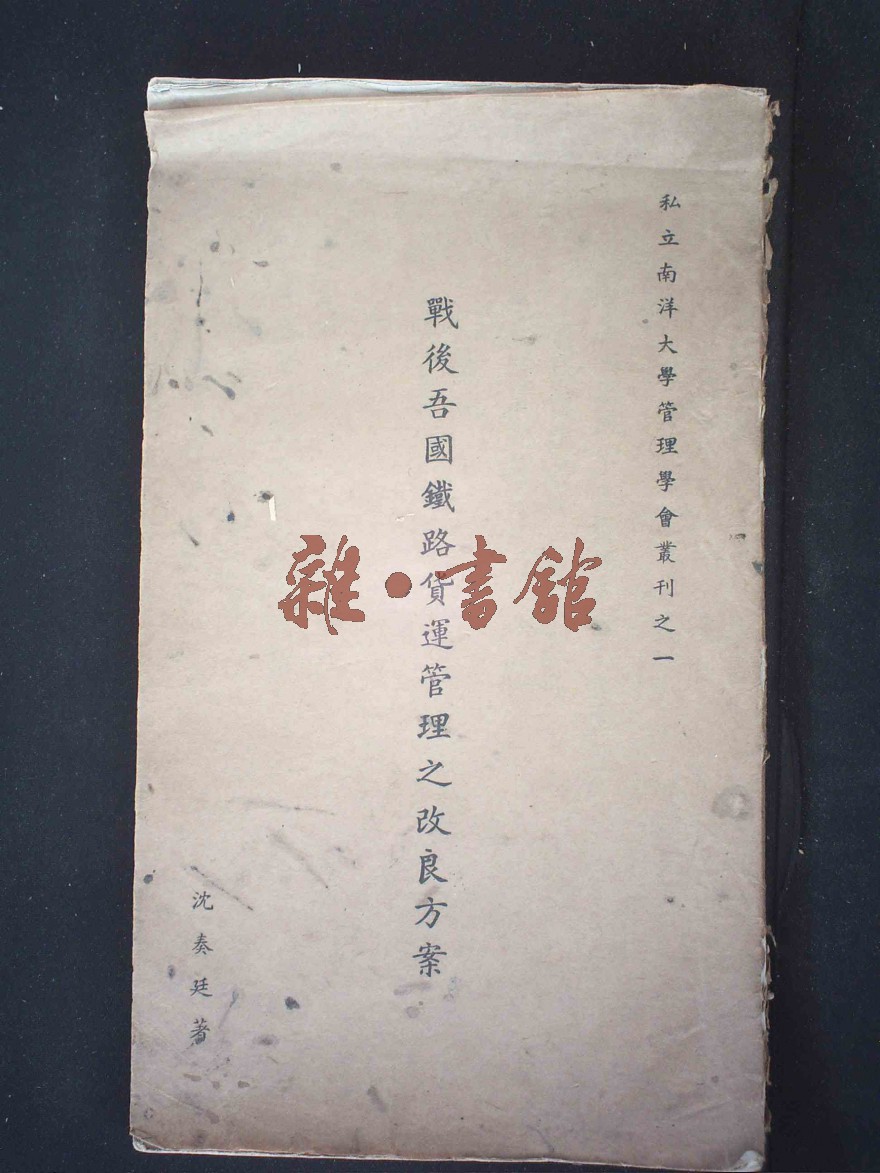 私立南洋大學管理學會叢刊之一
戰後吾國鐵路貨運管理之改良方案
沈奏廷著
雜·書館